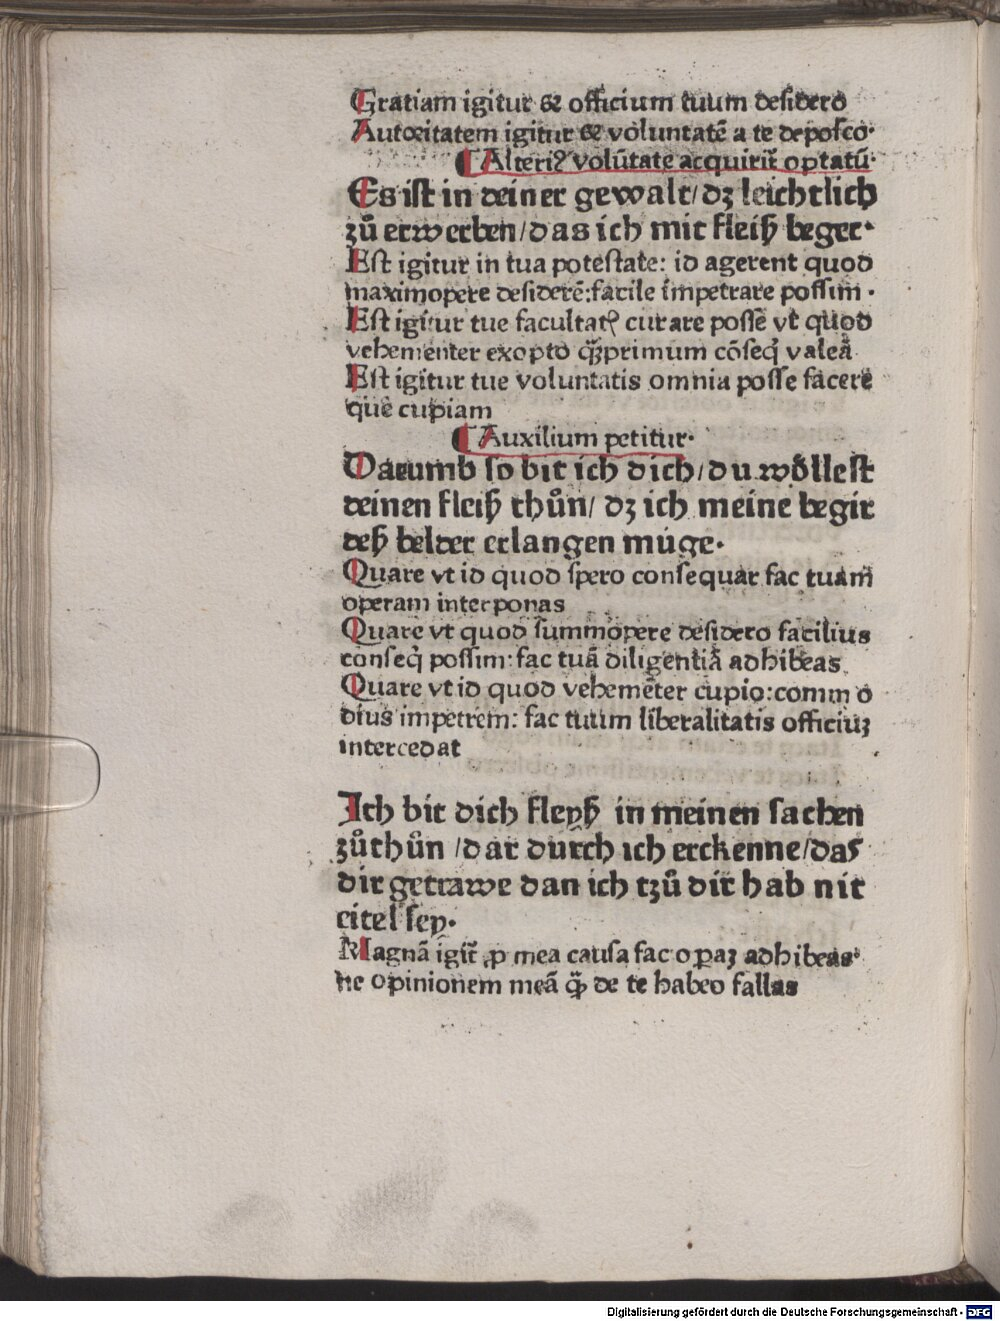 Gratiam igitur & officium tuum desidero
Autoritatem igitur & voluntatē a te deposco.
¶ Alteriꝰ volūtate acquirit̃ optatū.
Es ist in deiner gewalt/dz leichtlich
zů erwerben/das ich mit fleiß beger.
Est igitur in tua potestate: id agerent quod
maximopere desiderē:facile impetrare possim.
Est igitur tue facultatꝭ curare posse vt quod
vehementer exopto q̃primum cōseq̇ valeā
Est igitur tue voluntatis omnia posse facere
que cupiam
¶ Auxilium petitur.
Darumb so bit ich dich/du wöllest
deinen fleiß thůn/ dz ich meine begir
deß belder erlangen müge.
Quare vt id quod spero consequar fac tuam
operam interponas
Quare vt quod summopere desidero facilius
conseq̇ possim:fac tuā diligentiā adhibeas
Quare vt id quod vehemēter cupio:commo
dius impetrem: fac tuum liberalitatis officiuz
intercedat
Ich bit dich fleyß in meinen sachen
zůthůn /dar durch ich erckenne/das
dir getrawe dan ich tzů dir hab nit
eitel sey.
Magnā igit̃ ꝓ mea causa fac oꝑaz adhibeas
ne opinionem meā q̃ de te habeo fallas
Digitalisierung gefördert durch die Deutsche Forschungsgemeinschaft - DFG